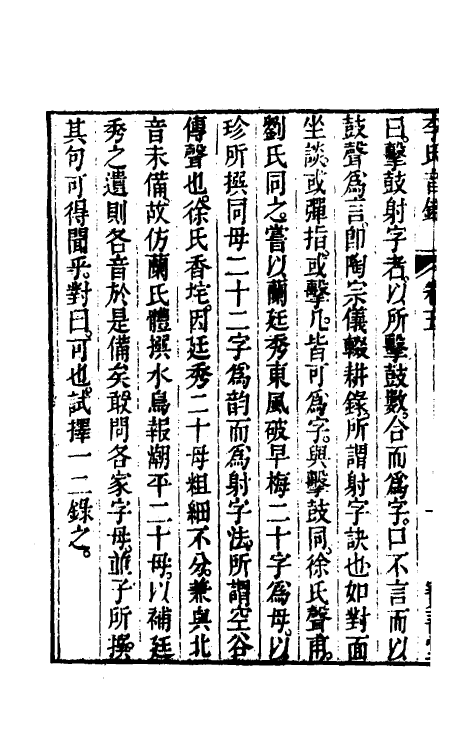 李氏音鑑　卷五
曰擊鼓射字者以所擊鼓數合而爲字口不言而以
鼓聲爲言卽陶宗儀輟耕錄所謂射字訣也如對面
坐談或彈指或擊几皆可爲字與擊鼓同徐氏聲甫
劉氏同之嘗以蘭廷秀東風破早梅二十字爲母以
珍所撰同母二十二字爲韵而爲射字法所謂空谷
傳聲也徐氏香垞因廷秀二十母粗細不分兼與北
音未備故仿蘭氏體撰水鳥報潮平二十母以補廷
秀之遺則各音於是備矣敢問各家字母並子所撰
其句可得聞乎對曰可也試擇一二錄之